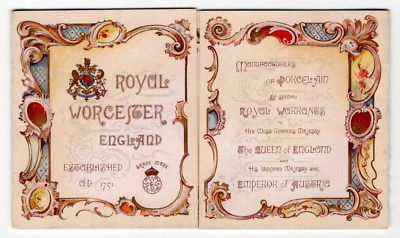 ROYAL
WORCESTER
ENGLAND
ESTABLISHED
A.D. 1751.
TRADE MARK
MANUFACTURERS
OF PORCELAIN
BY SPECIAL
ROYAL WARRANTS
TO
HER MOST GRACIOUS MAJESTY
THE QUEEN OF ENGLAND
AND
HIS IMPERIAL MAJESTY THE
EMPEROR OF AUSTRIA